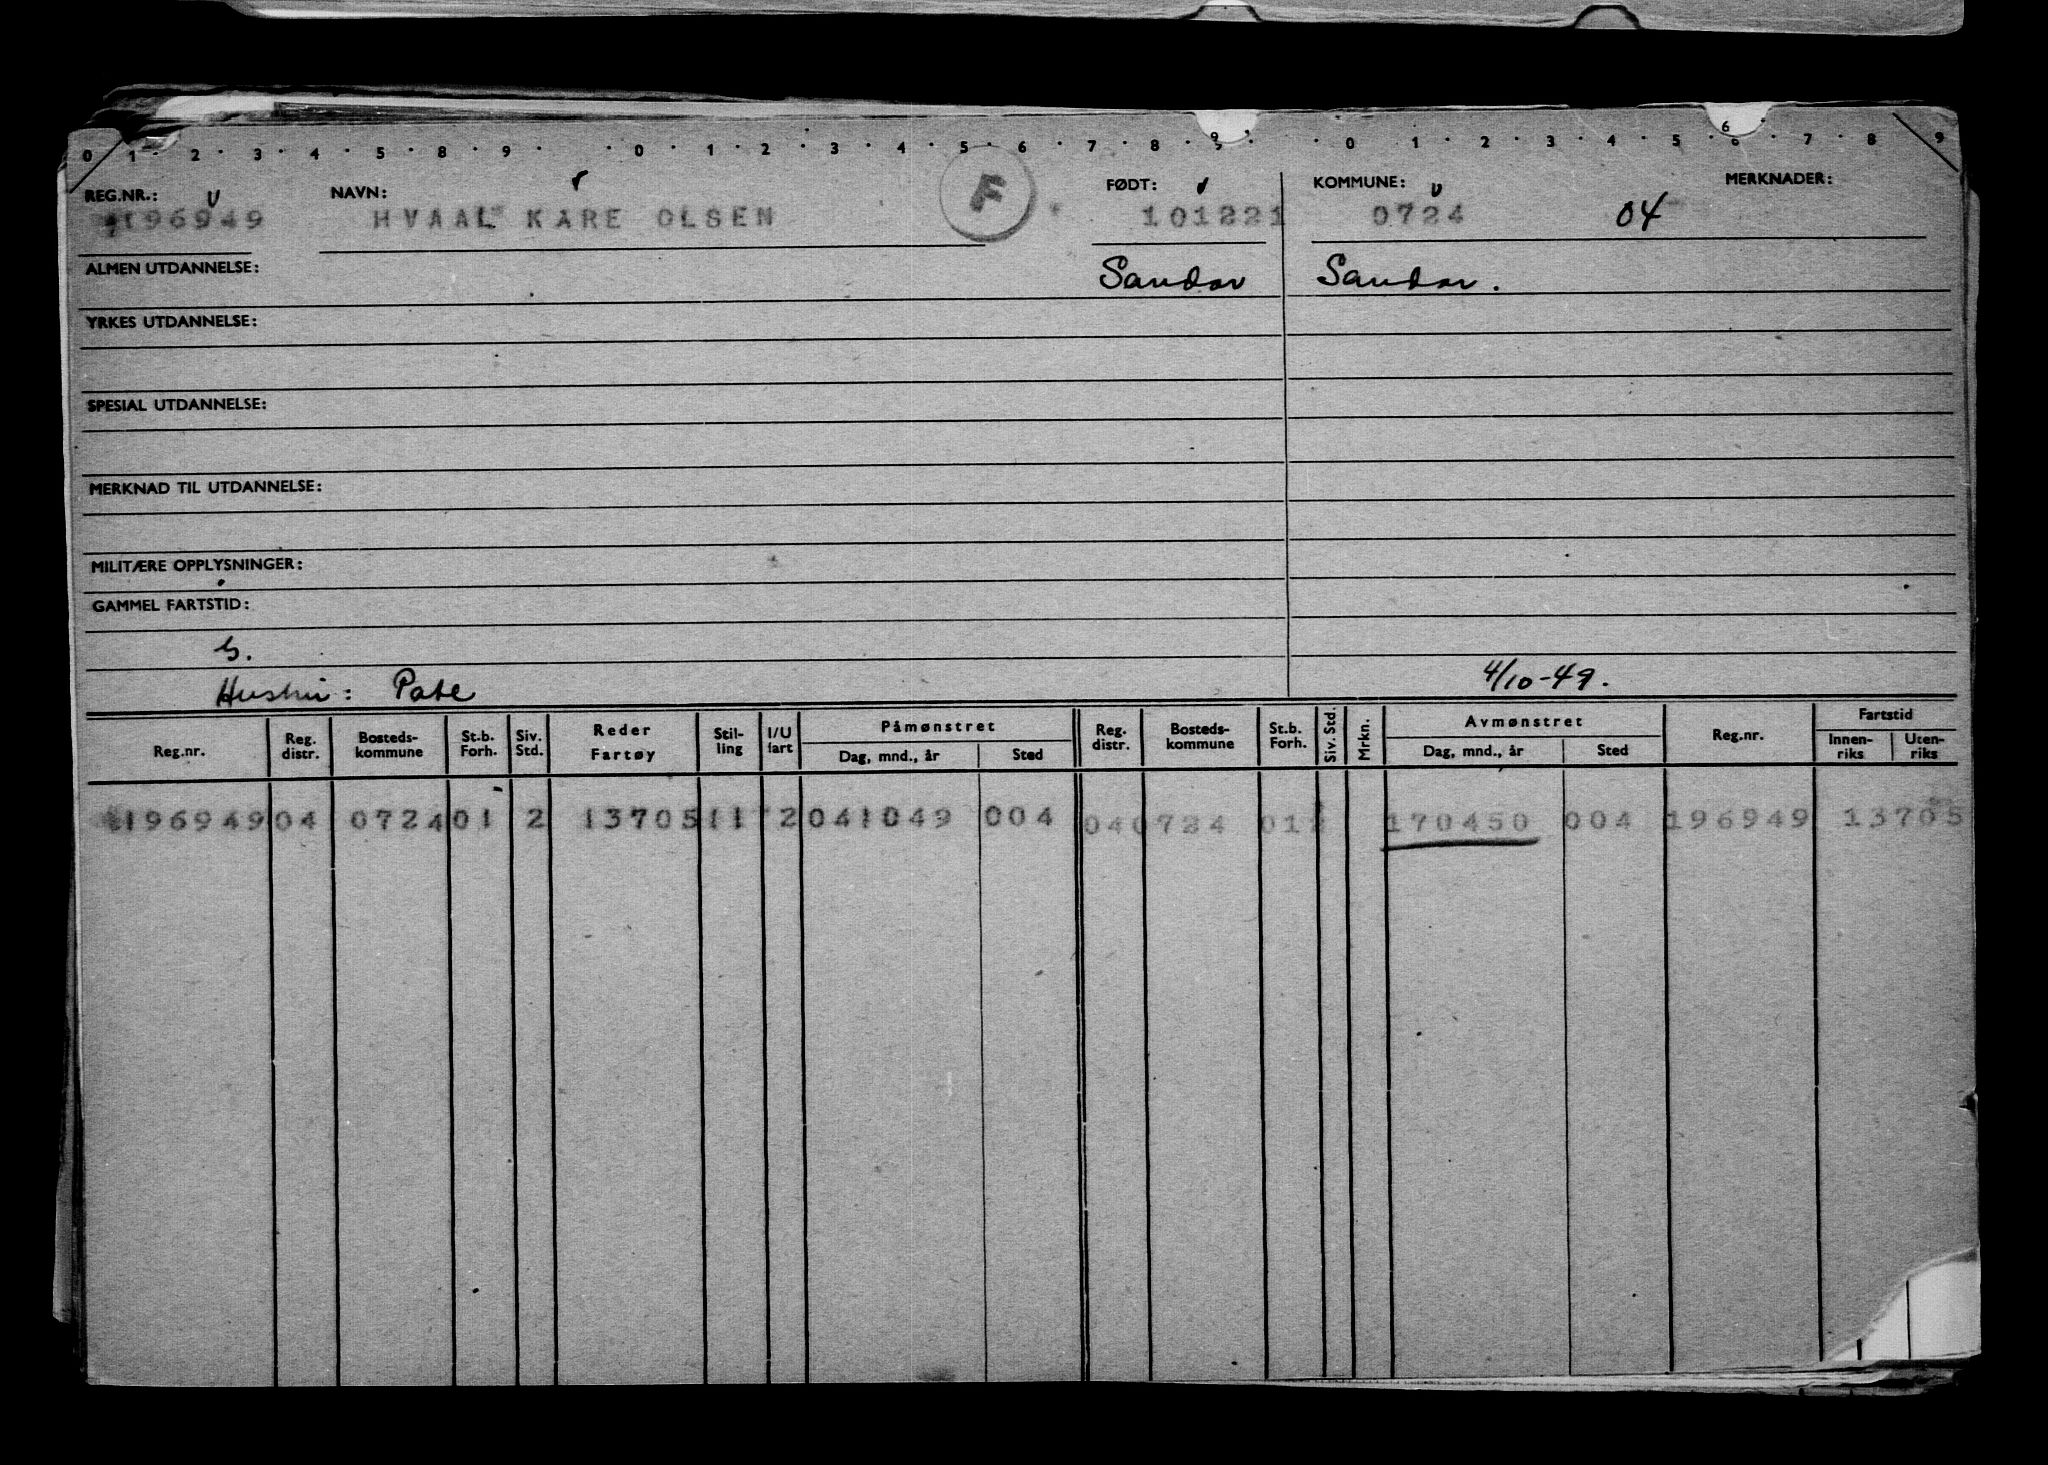 0 1 2 3 4 5 8 9 0 1 2 3 4 5 6 7 8 9 0 1 2 3 4 5 6 7 8 9
REG.NR.: NAVN: F FØDT: KOMMUNE: MERKNADER:
196949 HVAAL KARE OLSEN 101221 0724 04
ALMEN UTDANNELSE: Sandar Sandar.
YRKES UTDANNELSE:
SPESIAL UTDANNELSE:
MERKNAD TIL UTDANNELSE:
MILITÆRE OPPLYSNINGER:
GAMMEL FARTSTID:
Hustru: Pate 4/10-49.
Reg.nr. Reg. distr. Bosteds-kommune St.b. Forh. Siv. Std. Reder Fartøy Stil-ling I/U fart Påmønstret Dag, mnd., år Sted Reg. distr. Bosteds-kommune St.b. Forh. Siv. Std. Mrkn. Avmønstret Dag, mnd., år Sted Reg.nr. Fartstid Innen-riks Uten-riks
196949 04 0724 01 2 13705 11 2 041049 004 04 0724 01 2 170450 004 196949 13705